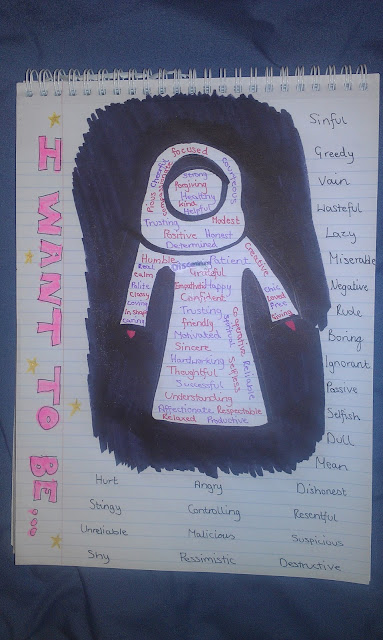 I WANT TO BE...
focused
Pious
Cheerful
Compassionate
courageous
Strong
Forgiving
Healthy
Kind
Helpful
Trusting
Modest
Positive Honest
Determined
Humble
Patient
Creative
Real
calm
Polite
Classy
Loving
In shape
Caring
Grateful
Empathetic Happy
Confident
Trusting
friendly
Motivated
Sincere
Hardworking
Thoughtful
Successful
Understanding
Affectionate Respectable
Relaxed Productive
Co-operative
Selfless
Reliable
Chic
Loved
Free
Giving
Sinful
Greedy
Vain
Wasteful
Lazy
Miserable
Negative
Rude
Boring
Ignorant
Passive
Selfish
Dull
Mean
Hurt Angry Dishonest
Stingy Controlling Resentful
Unreliable Malicious Suspicious
Shy Pessimistic Destructive